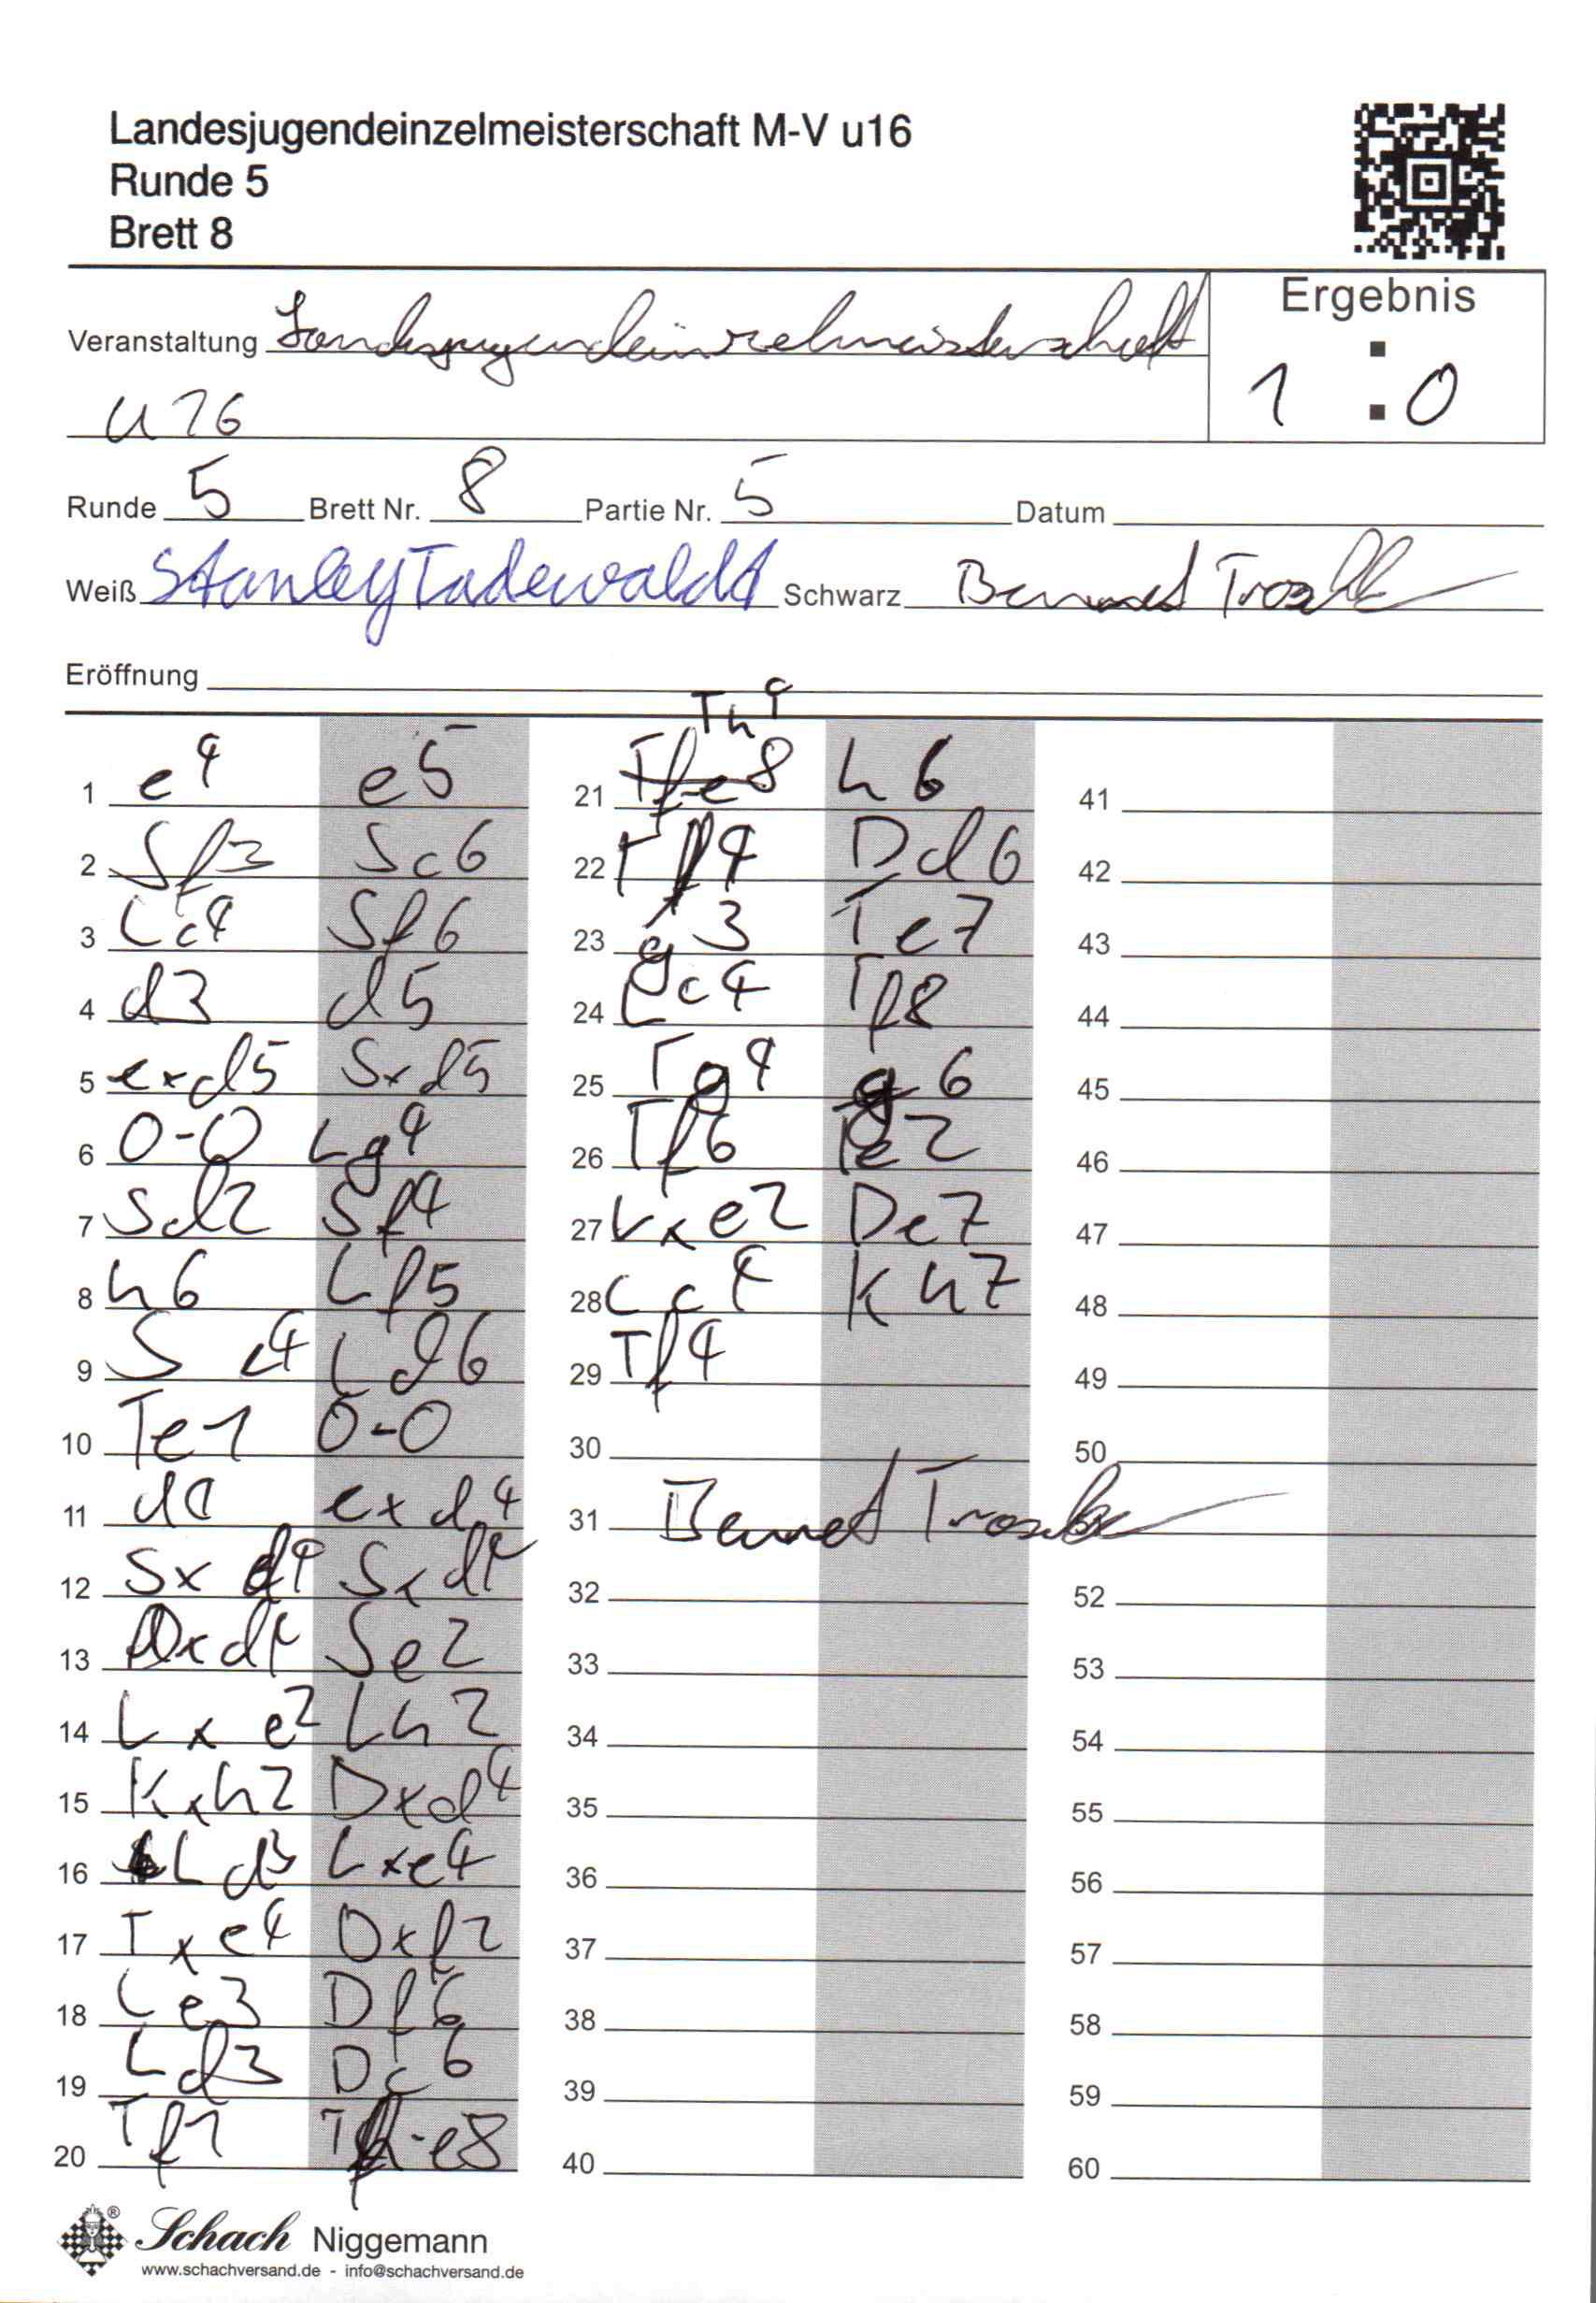 Landesjugendeinzelmeisterschaft M-V u16
Runde 5
Brett 8
Ergebnis
1 : 0
Veranstaltung Landesjugendeinzelmeisterschaft
U 16
Runde 5 Brett Nr. 8 Partie Nr. 5 Datum
Weiß Stanley Tadewaldt Schwarz Bennet
Eröffnung
1 e4 e5
2 Sf3 Sc6
3 Lc4 Sf6
4 d3 d5
5 exd5 Sxd5
6 0-0 Lg4
7 Sd2 Sf4
8 h6 Lf5
9 S e4 Ld6
10 Te1 0-0
11 d4 exd4
12 Sxd4 Sxd4
13 Dxd4 Se2
14 Lxe2 Lh2
15 Kxh2 Dxd4
16 Ld3 Lxe4
17 Txe4 Dxf2
18 Le3 Df6
19 Ld3 Dc6
20 Tf1 Tf-e8
21 Th4 h6
22 Tf4 Dd6
23 g3 Te7
24 Lc4 Tf8
25 Tg4 g6
26 Tf6 Te2
27 Lxe2 De7
28 Lc4 Kh7
29 Tf4
30
31 Bennet
32
33
34
35
36
37
38
39
40
41
42
43
44
45
46
47
48
49
50
52
53
54
55
56
57
58
59
60
Schach Niggemann
www.schachversand.de - info@schachversand.de